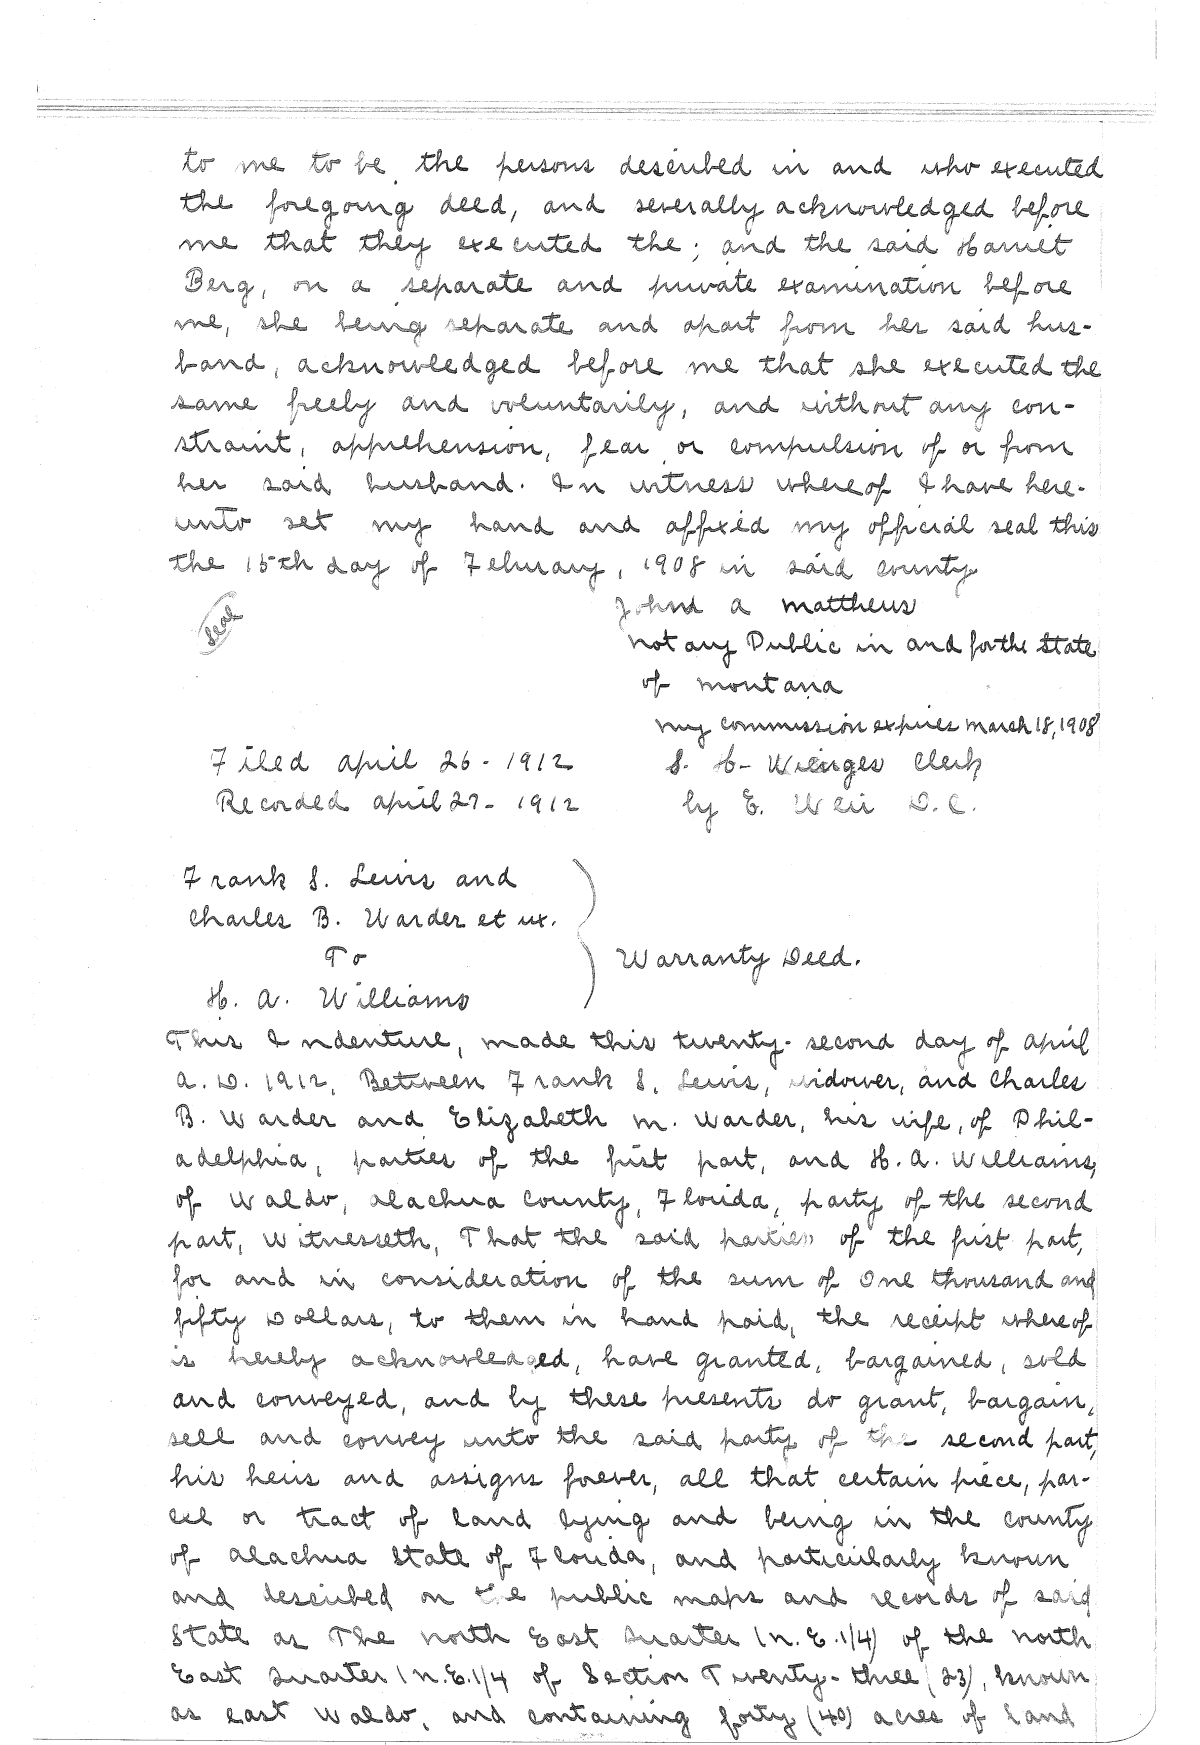 to me to be the persons described in and who executed
the foregoing deed, and severally acknowledged before
me that they executed the; and the said Harriet
Berg, on a separate and private examination before
me, she being separate and apart from her said hus-
band, acknowledged before me that she executed the
same freely and voluntarily, and without any con-
straint, apprehension, fear or compulsion of or from
her said husband. In witness whereof I have here-
unto set my hand and affixed my official seal this
the 15th day of February, 1908 in said county
Seal
John A Matthews
Notary Public in and for the State
of Montana
My commission expires March 18, 1908
Filed April 26 - 1912
S. H. Wienges Clerk
Recorded April 27 - 1912
by E. Weir D.C.
Frank S. Lewis and
Charles B. Warder et ux.
To
Warranty Deed.
H. A. Williams
This Indenture, made this twenty-second day of April
A.D. 1912, Between Frank S. Lewis, widower, and Charles
B. Warder and Elizabeth M. Warder, his wife, of Phil-
adelphia, parties of the first part, and H. A. Williams,
of Waldo, Alachua County, Florida, party of the second
part, Witnesseth, That the said parties of the first part,
for and in consideration of the sum of One thousand and
fifty Dollars, to them in hand paid, the receipt whereof
is hereby acknowledged, have granted, bargained, sold
and conveyed, and by these presents do grant, bargain,
sell and convey unto the said party of the second part,
his heirs and assigns forever, all that certain piece, par-
cel or tract of land lying and being in the county
of Alachua State of Florida, and particularly known
and described on the public maps and records of said
State as The North East Quarter (N.E.1/4) of the North
East Quarter (N.E.1/4 of Section Twenty-three (23), known
as East Waldo, and containing forty (40) acres of land